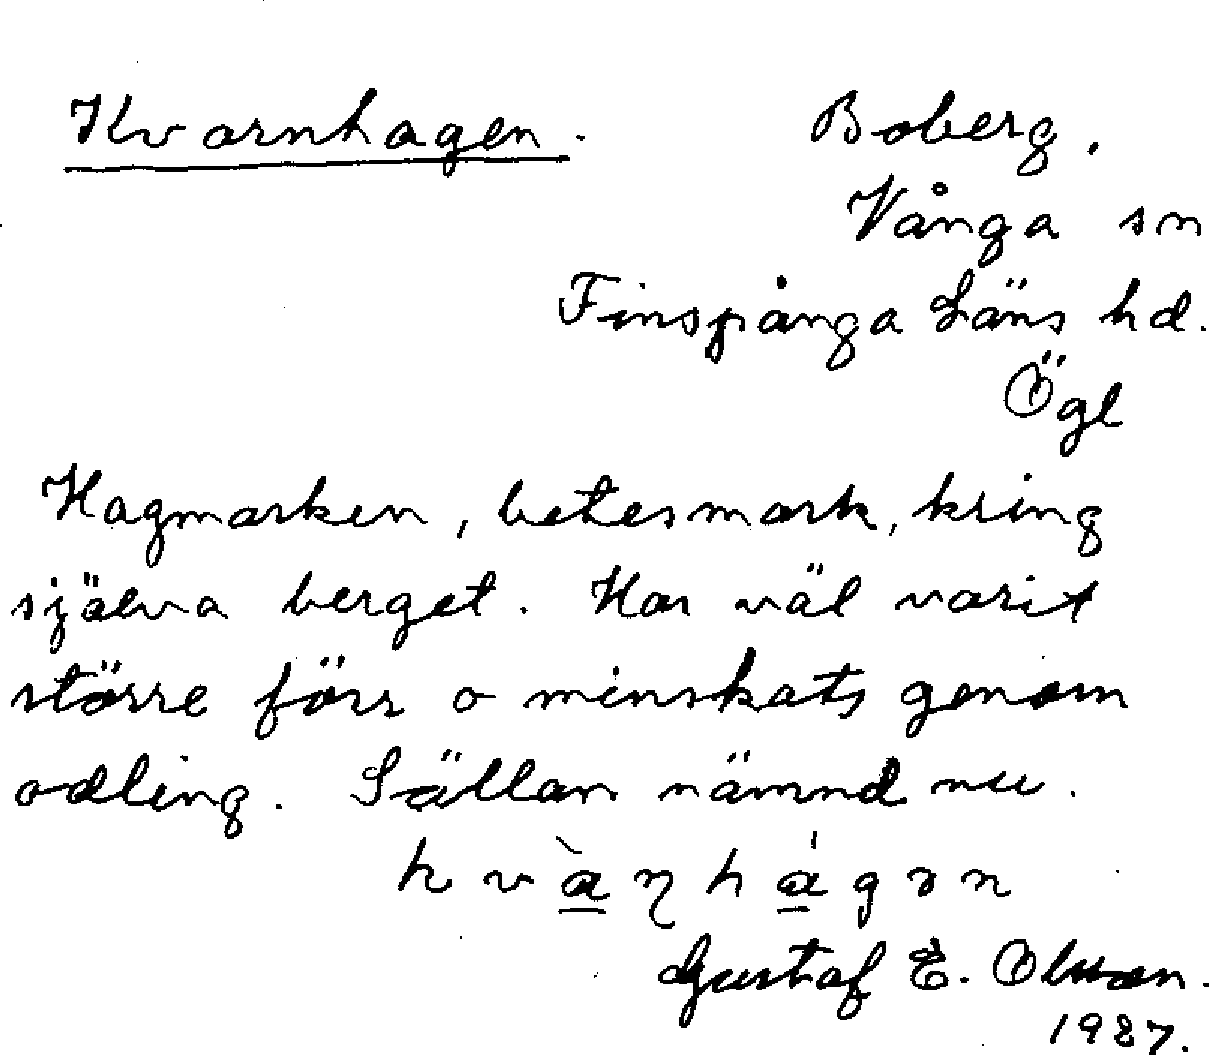 Kvarnhagen. Boberg.
Vånga sn
Finspånga Läns hd.
Ögl
Hagmarken, betesmark, kring
själva berget. Har väl varit
större förr o minskats genom
odling. Sällan nämnd nu.
Gustaf E. Olsson.
1927.